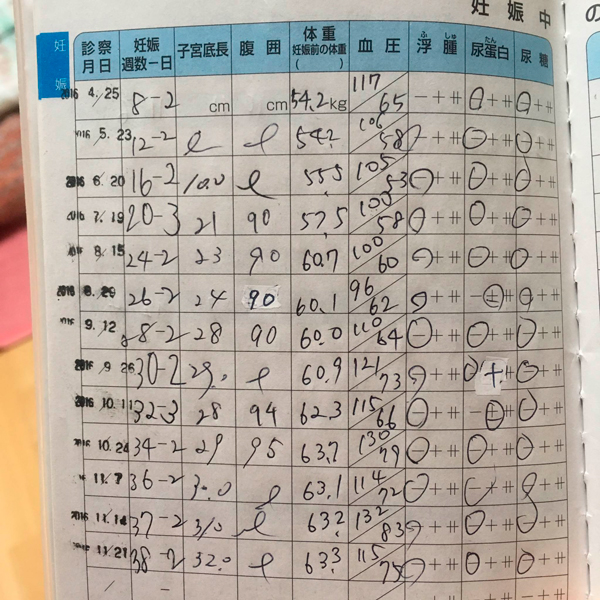 妊娠中
の
妊娠
診察月日 妊娠週数ー日 子宮底長 腹囲 体重 妊娠前の体重( ) 血圧 浮腫 ふ しゅ 尿蛋白 たん 尿糖
2016 4/25 8-2 cm cm 54.2kg 117/65 - + ⧺ - + ⧺ - + ⧺
5.23 12-2 54.2 106/58 - + ⧺ - + ⧺ - + ⧺
2016 6.20 16-2 10.0 55.5 105/53 - + ⧺ - + ⧺ - + ⧺
2016 7.19 20-3 21 90 57.5 100/58 - + ⧺ - + ⧺ - + ⧺
8.15 24-2 23 90 60.7 100/60 - + ⧺ - + ⧺ - + ⧺
2016 8.29 26-2 24 90 60.1 96/62 - + ⧺ - ± ⧺ - + ⧺
9.12 28-2 28 90 60.0 110/64 - + ⧺ - + ⧺ - + ⧺
2016 9 26 30-2 29.0 60.9 121/73 - + ⧺ - + ⧺ - + ⧺
2016 10.11 32-3 28 94 62.3 115/66 - + ⧺ - ± ⧺ - + ⧺
2016 10.24 34-2 29 95 63.7 130/79 - + ⧺ - + ⧺ - + ⧺
11.7 36-2 30.0 63.1 114/72 - + ⧺ - + ⧺ - + ⧺
2016 11.14 37-2 31.0 63.2 132/83 - + ⧺ - + ⧺ - + ⧺
11.21 38-2 32.0 63.3 115/75 - + ⧺ - + ⧺ - + ⧺
/ - / - + ⧺ - + ⧺ - + ⧺